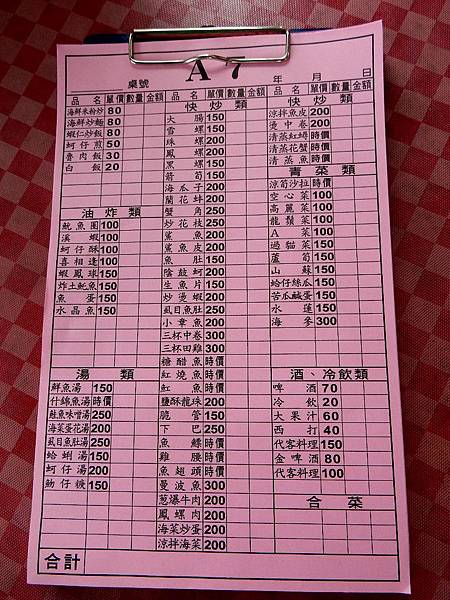 A 7
桌號 年 月 日
品名 單價 數量 金額 品名 單價 數量 金額 品名 單價 數量 金額
海鮮米粉炒 80
海鮮炒麵 80
蝦仁炒飯 80
蚵仔煎 50
魯肉飯 30
白飯 20
油炸類
魷魚圈 100
溪蝦 100
蚵仔酥 100
喜相逢 100
蝦鳳球 150
炸土魠魚 150
魚蛋 150
水晶魚 150
湯類
鮮魚湯 150
什錦魚湯 時價
鮭魚味噌湯 250
海菜蛋花湯 200
虱目魚肚湯 250
蛤蜊湯 150
蚵仔湯 200
魩仔𩵚 150
合計
快炒類
大腸 150
雪螺 150
珠螺 200
鳳螺 200
黑螺 150
箭筍 150
海瓜子 200
蘭花蚌 200
蟹角 250
炒花枝 250
薰魚 200
薰魚皮 200
魚肚 150
陰鼓蚵 200
生魚片 150
炒燙蝦 200
虱目魚肚 250
小章魚 200
三杯中卷 300
三杯田雞 300
糖醋魚 時價
紅燒魚 時價
魟魚 時價
鹽酥龍珠 200
脆管 150
下巴 250
魚鰾 時價
雞腰 時價
魚翅頭 時價
曼波魚 300
葱爆牛肉 200
鳳螺肉 200
海菜炒蛋 200
涼拌海菜 200
快炒類
涼拌魚皮 200
燙中卷 200
清蒸紅蟳 時價
清蒸花蟹 時價
清蒸魚 時價
青菜類
涼筍沙拉 時價
空心菜 100
高麗菜 100
龍鬚菜 100
A菜 100
過貓菜 150
蘆筍 150
山蘇 150
蛤仔絲瓜 150
苦瓜鹹蛋 150
水蓮 150
海參 300
酒、冷飲類
啤酒 70
冷飲 20
大果汁 60
西打 40
代客料理 150
金啤酒 80
代客料理 100
合菜